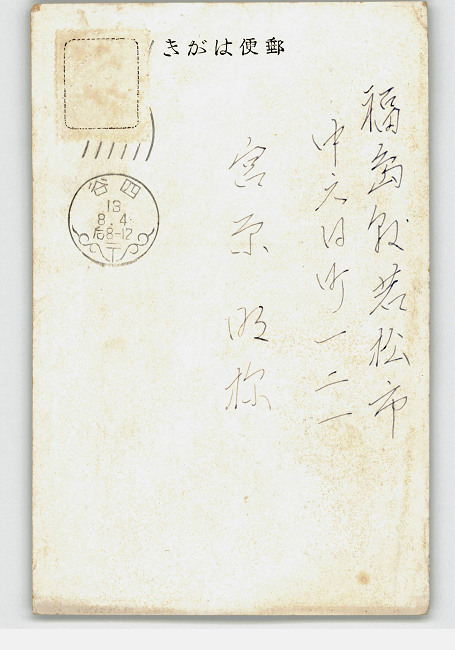 郵便はがき
福島県若松市
中六日町一二一
宮原明様
四谷
13
8.4
后8-12